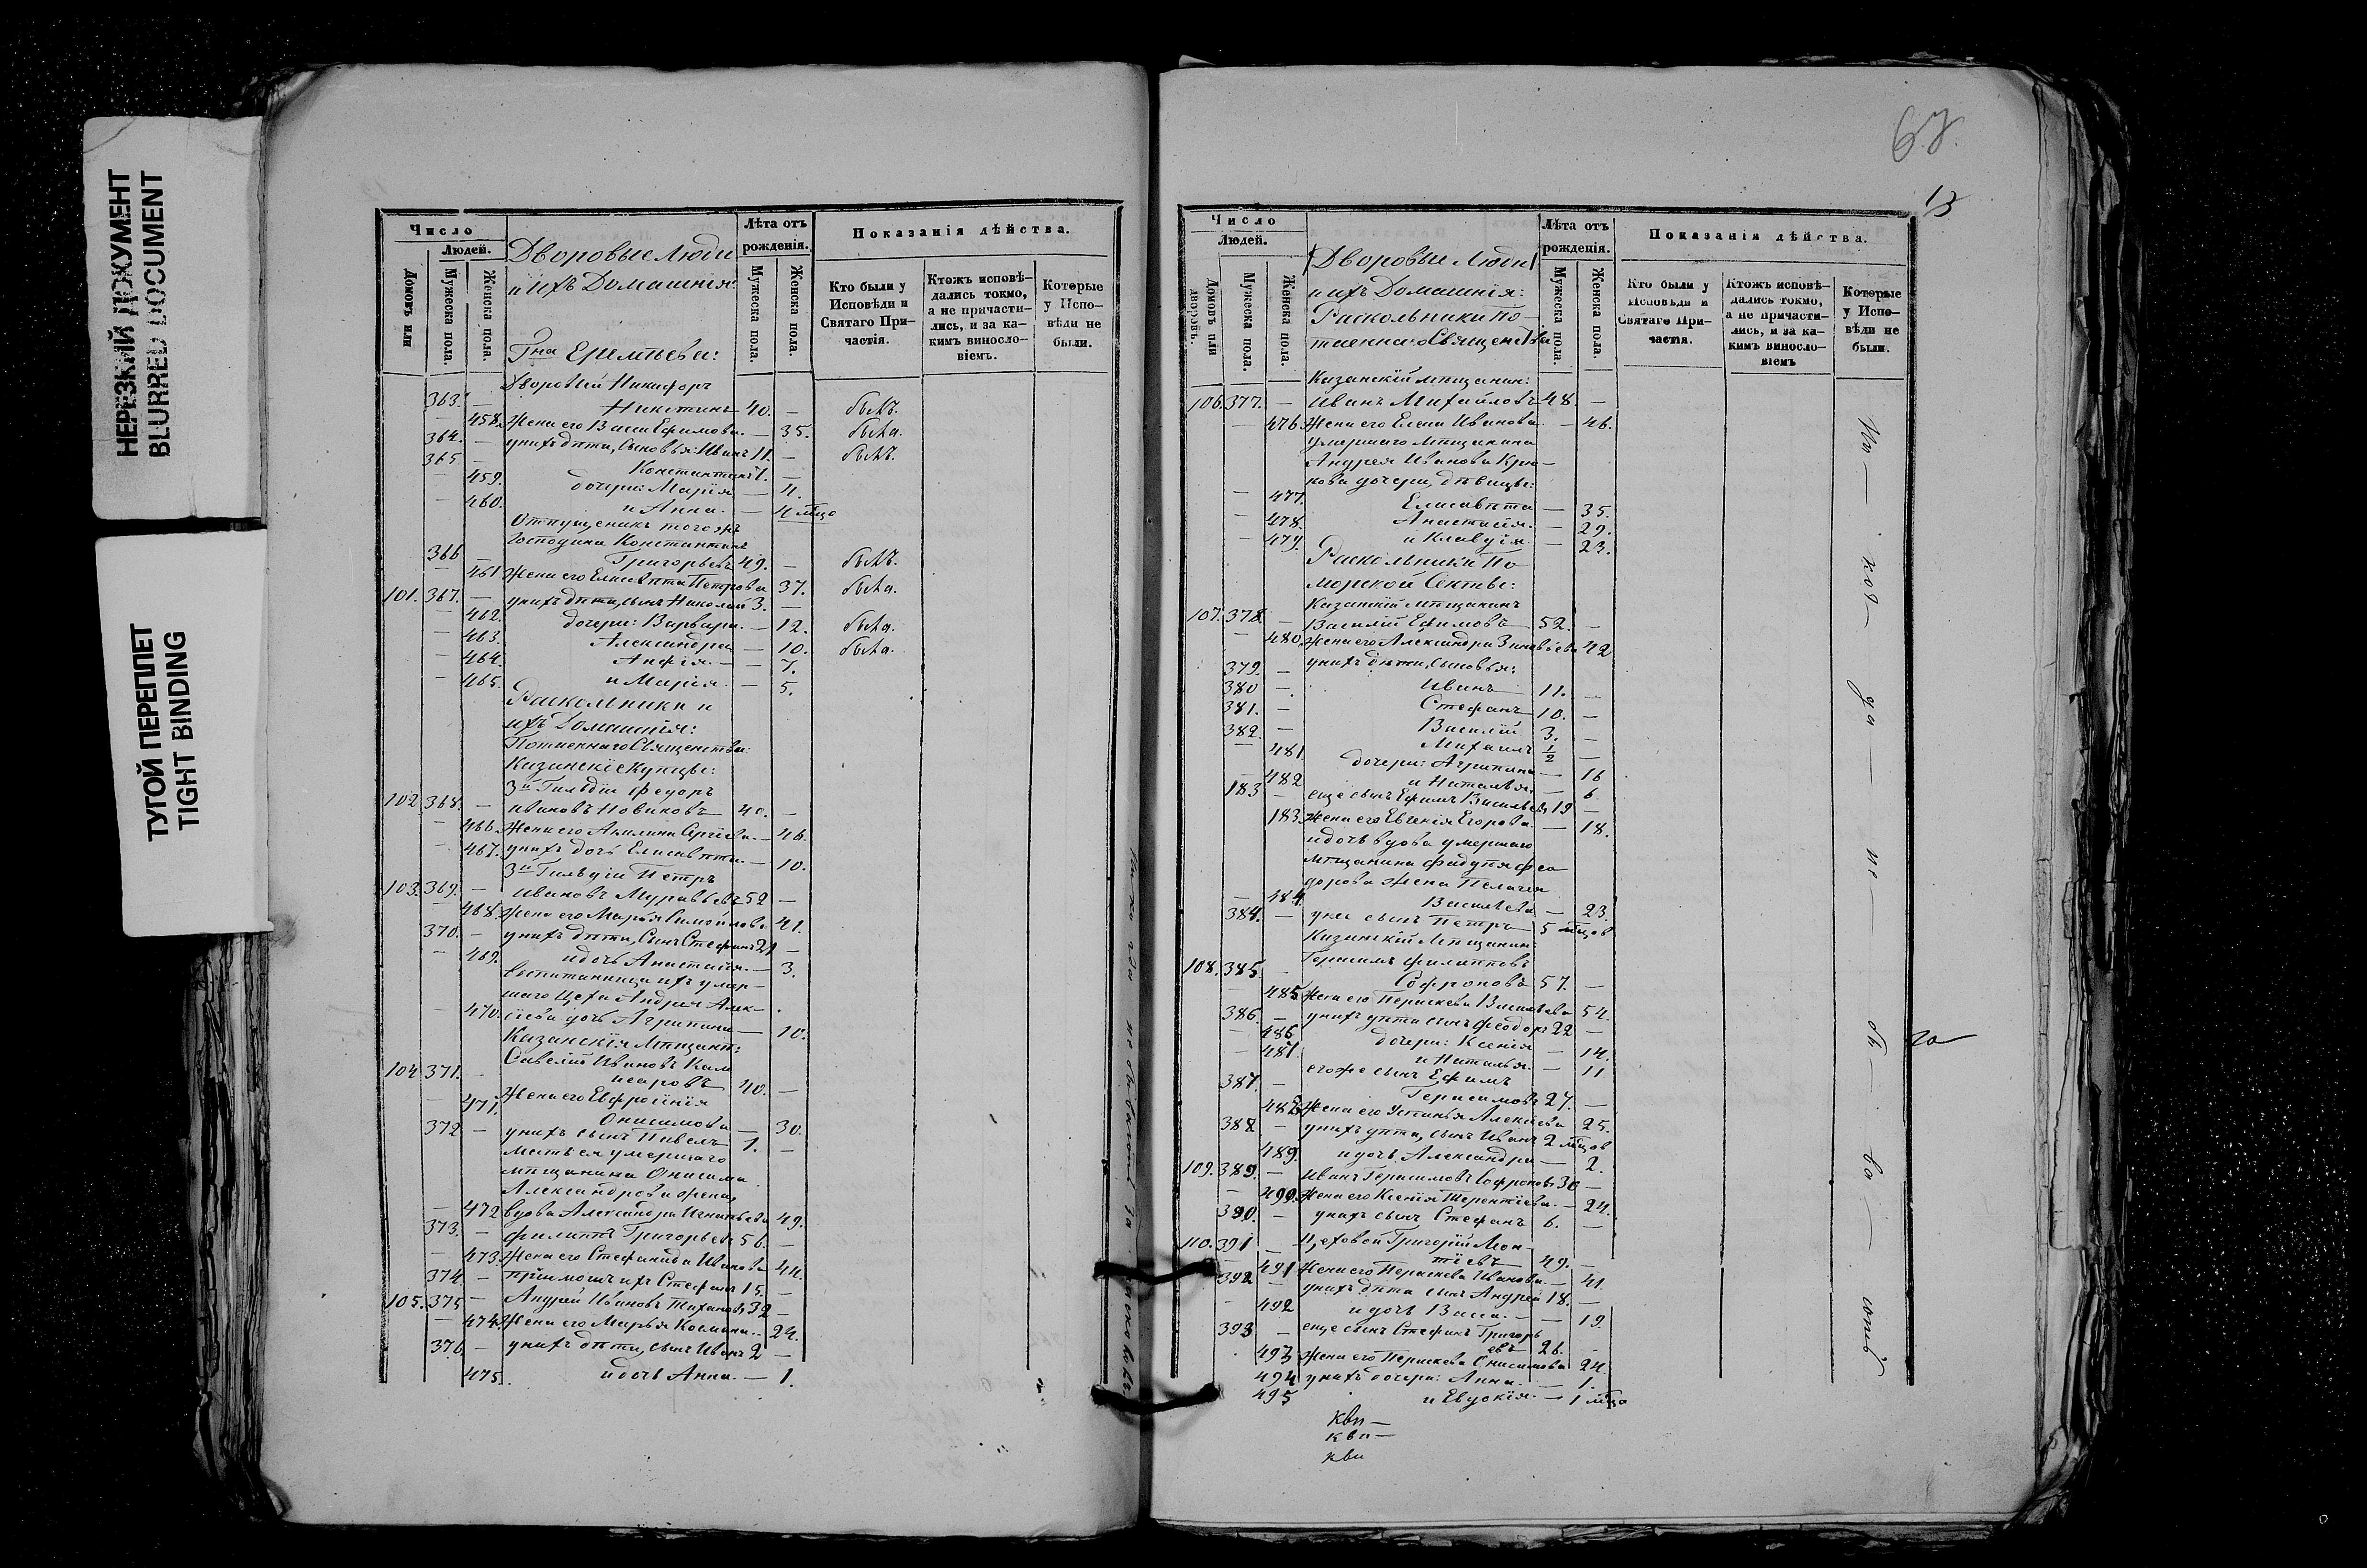 НЕРЕЗКИЙ ДОКУМЕНТ
BLURRED DOCUMENT
ТУГОЙ ПЕРЕПЛЕТ
TIGHT BINDING
Число
Людей.
Домовъ или
Мужеска пола.
Женска пола.
Дворовые Люди
и ихъ Домашнія:
Гна Еремѣева:
Лѣта отъ рожденія.
Мужеска пола.
Женска пола.
Показанія дѣйства.
Кто были у Исповѣди и Святаго Причастія.
Ктожъ исповѣ-
дались токмо,
а не причасти-
лись, и за ка-
кимъ винословіемъ.
Которые
у Испо-
вѣди не
были.
Дворовый Никифоръ
363. — Никитинъ 40. — былъ.
— 458. Жена его Васса Ефимова. — 35. была.
364. — у нихъ дѣти, сыновья: Иванъ 11. — былъ.
365 — Константинъ 7. —
— 459. дочери: Марія — 4.
— 460. и Анна. — 4 мца
Отпущеникъ тогожъ
Господина Константинъ
366 — Григорьевъ 49. — былъ.
— 461 Жена его Елисавета Петрова 37. была.
101. 367. — у нихъ дѣти, сынъ Николай 3. —
— 462. дочери: Варвара. — 12. была.
— 463. Александра — 10. была.
— 464. Анфія. — 7.
— 465. и Марія. — 5.
Раскольники и
ихъ Домашнія:
Потаеннаго Священства:
Казанскіе Купцы:
3й Гильдіи Федоръ
102 368. — Ивановъ Новиковъ 40. —
— 466. Жена его Акилина Сергіева. — 46.
— 467. у нихъ дочь Елисавета. — 10.
3й Гильдіи Петръ
103. 369. — Ивановъ Муравьевъ 52 —
— 468. Жена его Марья Самойлова 41.
370. — у нихъ дѣти, Сынъ Стефанъ 21 —
— 469. и дочь Анастасія. — 3.
Воспитанница ихъ умер-
шаго Цеха Андрея Алек-
— 470. сіева дочь Агрипина — 10.
Казанскія Мѣщане:
Савелій Ивановъ Ком
104 371. — исаровъ 40. —
— 471. Жена его Евфросинія
Онисимова — 30.
372 — у нихъ сынъ Павелъ 1. —
Мать ея умершаго
мѣщанина Онисима
Александрова жена,
— 472 вдова Александра Игнатьева 49.
373. — Филиппъ Григорьевъ 56. —
— 473. Жена его Стефанида Иванова 44.
374. — пріимышъ ихъ Стефанъ 15. —
105. 375 — Андрей Ивановъ Тихановъ 32 —
— 474. Жена его Марья Козмина. — 24.
376 — у нихъ дѣти, сынъ Иванъ 2 —
475. и дочь Анна. — 1.
67.
13
Число
Людей.
Домовъ или дворовъ.
Мужеска пола.
Женска пола.
Дворовые Люди
и ихъ Домашнія:
Раскольники По-
таеннаго Священства
Лѣта отъ рожденія.
Мужеска пола.
Женска пола.
Показанія дѣйства.
Кто были у Исповѣди и Святаго Причастія.
Ктожъ исповѣ-
дались токмо,
а не причасти-
лись, и за ка-
кимъ винословіемъ
Которые
у Испо-
вѣди не
были.
Казанскій мѣщанин:
106. 377. — Иванъ Михайловъ 48. —
— 476. Жена его Елена Иванова — 46.
умершаго мѣщанина
Андрея Иванова Крю-
кова дочери, дѣвицы:
— 477. Елисавета — 35.
— 478. Анастасія. — 29.
— 479. и Клавдія. — 23.
Раскольники По
морской Секты:
Казанскій мѣщанинъ
107. 378. — Василій Ефимовъ 52. —
— 480. Жена его Александра Зиновьева 42
379. — у нихъ дѣти, сыновья:
380 — Иванъ 11. —
381. — Стефанъ 10. —
382. — Василій 3. —
Михаилъ 1/2 —
481 дочери: Агрипина — 16
482 и Наталья. — 6.
183 — еще сынъ Ефимъ Васильевъ 19 —
183. Жена его Евгенія Егорова. — 18.
и дочь вдова умершаго
мѣщанина Фадѣя Фео
дорова жена Пелагея
— 484. Васильева — 23.
384. — у нея сынъ Петръ 5 мцов
Казанскій Мѣщанин:
Герасимъ Филипповъ
108. 385. Софроновъ 57. —
— 485 Жена его Параскева Васильева 54.
386. — у нихъ дѣти сынъ Феодоръ 22 —
— 486 дочери: Ксенія — 14.
— 487. и Наталья. — 11
387. — его же сынъ Ефимъ
Герасимовъ 27. —
488 Жена его Устинья Алексіева 25.
388. — у нихъ дѣти, сынъ Иванъ 2 мцов
489. и дочь Александра — 2.
109. 389. — Иванъ Герасимовъ Софроновъ 30 —
— 490. Жена его Ксенія Терентіева. — 24.
390. — у нихъ сынъ Стефанъ 6. —
110. 391 — Цеховой Григорій Леон-
тіевъ 49. —
— 491 Жена его Параскева Иванова. — 41
392 — у нихъ дѣти сынъ Андрей 18. —
— 492 и дочь Васса. — 19.
393 — еще сынъ Стефанъ Григорь
евъ 26.
493 Жена его Параскева Онисимова 24.
494 у нихъ дочери: Анна. — 1.
495 и Евдокія. — 1 мца